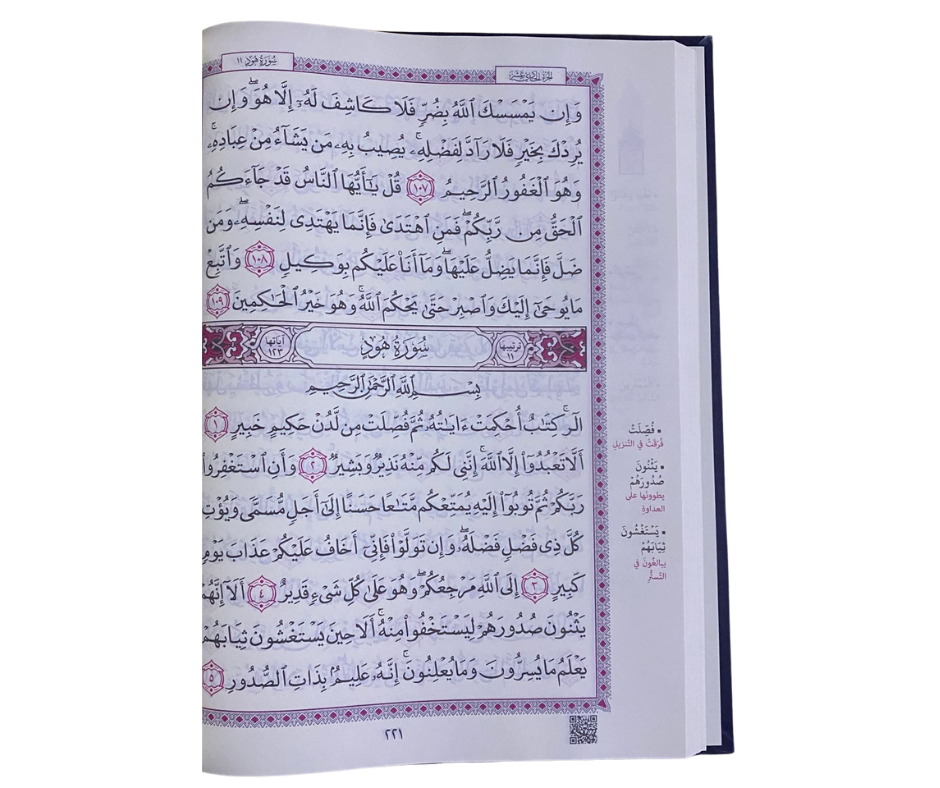 الجزء الحادي عشر
سُورَةُ هُودٍ ١١
وَإِن يَمْسَسْكَ ٱللَّهُ بِضُرٍّ فَلَا كَاشِفَ لَهُۥٓ إِلَّا هُوَۖ وَإِن
يُرِدْكَ بِخَيْرٍ فَلَا رَآدَّ لِفَضْلِهِۦۚ يُصِيبُ بِهِۦ مَن يَشَآءُ مِنْ عِبَادِهِۦۚ
وَهُوَ ٱلْغَفُورُ ٱلرَّحِيمُ ١٠٧ قُلْ يَٰٓأَيُّهَا ٱلنَّاسُ قَدْ جَآءَكُمُ
ٱلْحَقُّ مِن رَّبِّكُمْۖ فَمَنِ ٱهْتَدَىٰ فَإِنَّمَا يَهْتَدِى لِنَفْسِهِۦۖ وَمَن
ضَلَّ فَإِنَّمَا يَضِلُّ عَلَيْهَاۖ وَمَآ أَنَا۠ عَلَيْكُم بِوَكِيلٍ ١٠٨ وَٱتَّبِعْ
مَا يُوحَىٰٓ إِلَيْكَ وَٱصْبِرْ حَتَّىٰ يَحْكُمَ ٱللَّهُۚ وَهُوَ خَيْرُ ٱلْحَٰكِمِينَ ١٠٩
ترتيبها ١١ سُورَةُ هُودٍ آياتها ١٢٣
بِسْمِ ٱللَّهِ ٱلرَّحْمَٰنِ ٱلرَّحِيمِ
الٓرۚ كِتَٰبٌ أُحْكِمَتْ ءَايَٰتُهُۥ ثُمَّ فُصِّلَتْ مِن لَّدُنْ حَكِيمٍ خَبِيرٍ ١
أَلَّا تَعْبُدُوٓا۟ إِلَّا ٱللَّهَۚ إِنَّنِى لَكُم مِّنْهُ نَذِيرٌ وَبَشِيرٌ ٢ وَأَنِ ٱسْتَغْفِرُوا۟
رَبَّكُمْ ثُمَّ تُوبُوٓا۟ إِلَيْهِ يُمَتِّعْكُم مَّتَٰعًا حَسَنًا إِلَىٰٓ أَجَلٍ مُّسَمًّى وَيُؤْتِ
كُلَّ ذِى فَضْلٍ فَضْلَهُۥۖ وَإِن تَوَلَّوْا۟ فَإِنِّىٓ أَخَافُ عَلَيْكُمْ عَذَابَ يَوْمٍ
كَبِيرٍ ٣ إِلَى ٱللَّهِ مَرْجِعُكُمْۖ وَهُوَ عَلَىٰ كُلِّ شَىْءٍ قَدِيرٌ ٤ أَلَآ إِنَّهُمْ
يَثْنُونَ صُدُورَهُمْ لِيَسْتَخْفُوا۟ مِنْهُۚ أَلَا حِينَ يَسْتَغْشُونَ ثِيَابَهُمْ
يَعْلَمُ مَا يُسِرُّونَ وَمَا يُعْلِنُونَۚ إِنَّهُۥ عَلِيمٌۢ بِذَاتِ ٱلصُّدُورِ ٥
▪ فُصِّلَتْ
فُرِّقَتْ في التنزيل
▪ يَثْنُونَ
صُدُورَهُمْ
يطوونها على
العداوة
▪ يَسْتَغْشُونَ
ثِيَابَهُمْ
يبالغون في
التستُّر
٢٢١